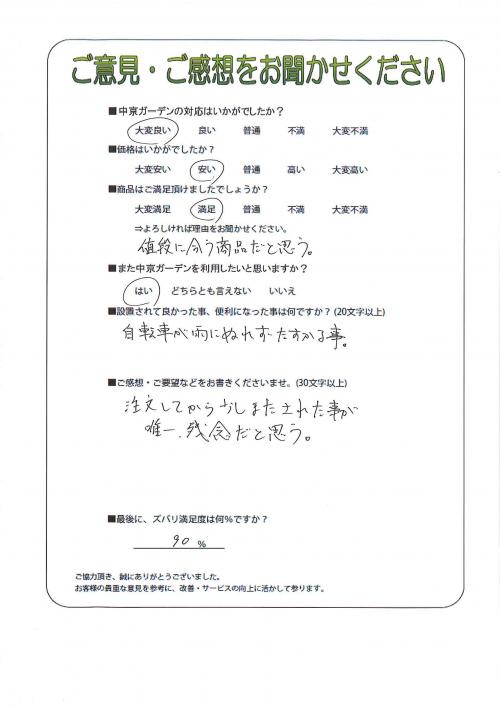 ご意見・ご感想をお聞かせください
■中京ガーデンの対応はいかがでしたか？
大変良い 良い 普通 不満 大変不満
■価格はいかがでしたか？
大変安い 安い 普通 高い 大変高い
■商品はご満足頂けましたでしょうか？
大変満足 満足 普通 不満 大変不満
⇒よろしければ理由をお聞かせください。
値段に合う商品だと思う。
■また中京ガーデンを利用したいと思いますか？
はい どちらとも言えない いいえ
■設置されて良かった事、便利になった事は何ですか？(20文字以上)
自転車が雨にぬれずたすかる事。
■ご感想・ご要望などをお書きくださいませ。(30文字以上)
注文してから少しまたされた事が
唯一、残念だと思う。
■最後に、ズバリ満足度は何％ですか？
90 %
ご協力頂き、誠にありがとうございました。
お客様の貴重な意見を参考に、改善・サービスの向上に活かして参ります。